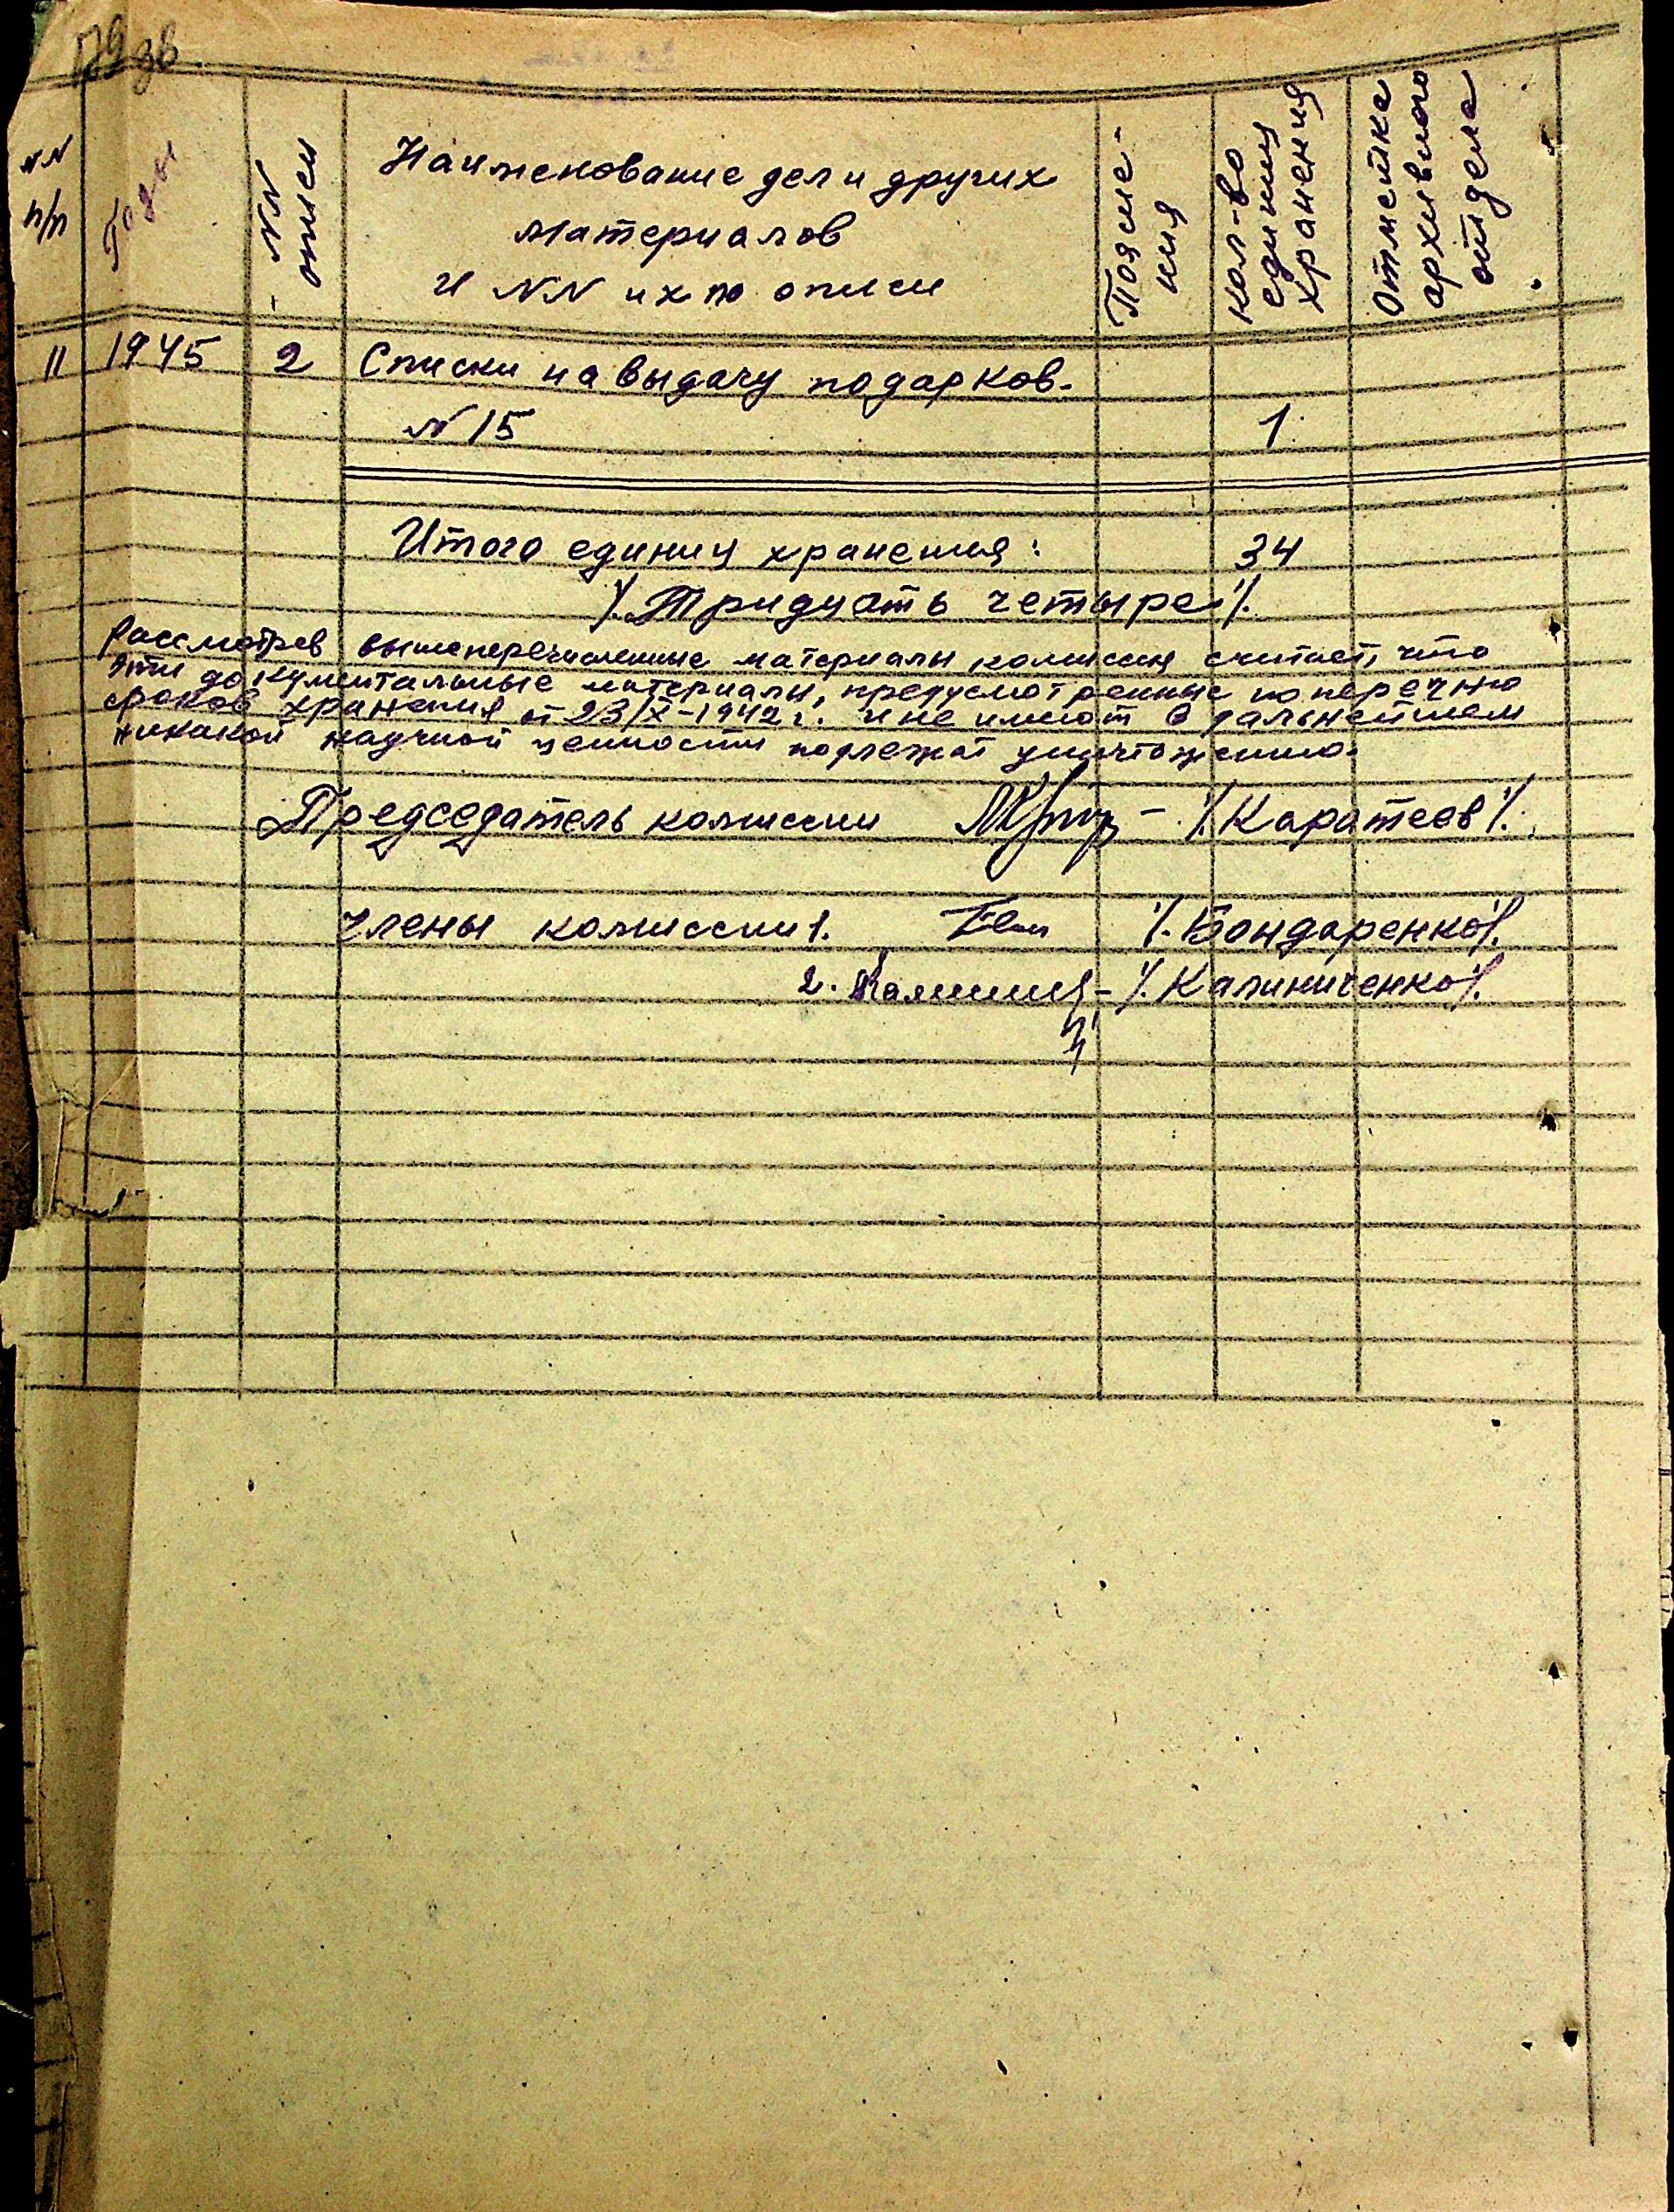 NN п/п
Годы
NN описи
Наименование дел и других
материалов
и NN их по описи
Поясне-
ния
Кол-во
единиц
хранения
Отметка
архивного
отдела
11 1945 2 Списки на выдачу подарков.
N 15 1.
Итого единиц хранения: 34
/.Тридцать четыре./.
Рассмотрев вышеперечисленные материалы комиссия считает, что
эти документальные материалы, предусмотренные по перечню
сроков хранения от 23/X-1942 г. и не имеют в дальнейшем
никакой научной ценности подлежат уничтожению.
Председатель комиссии /.Каратеев/.
Члены комиссии 1. /.Бондаренко/.
2. /.Калиниченко/.